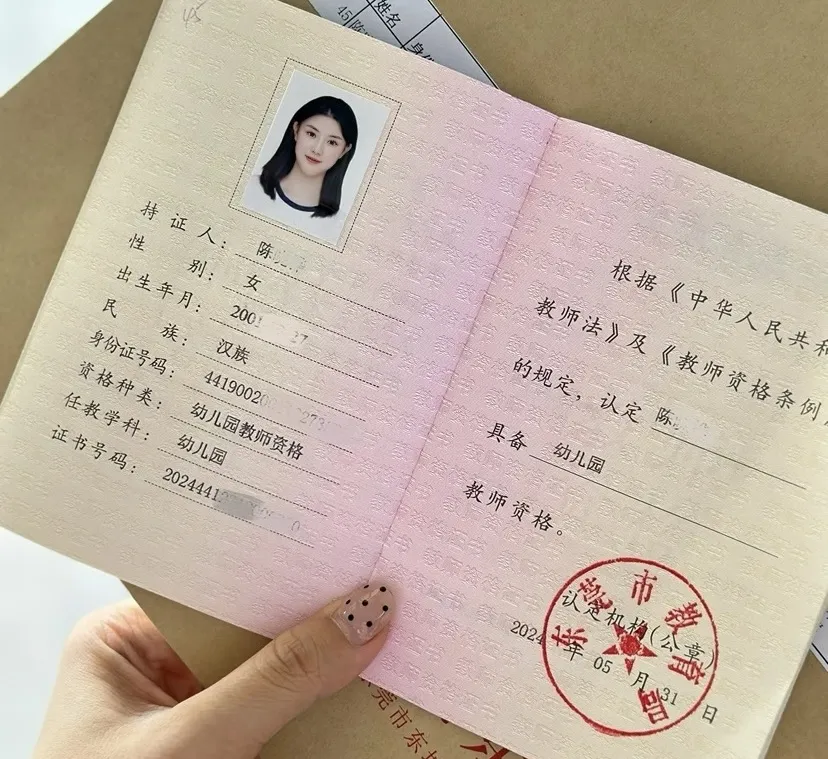 姓名
45
持证人：陈
性别：女
出生年月：200
民族：汉族
身份证号码：44190020
资格种类：幼儿园教师资格
任教学科：幼儿园
证书号码：2024441
根据《中华人民共和
教师法》及《教师资格条例
的规定，认定 陈
具备 幼儿园
教师资格。
认定机构（公章）
2024年05月31日
东莞市教育局
莞市东